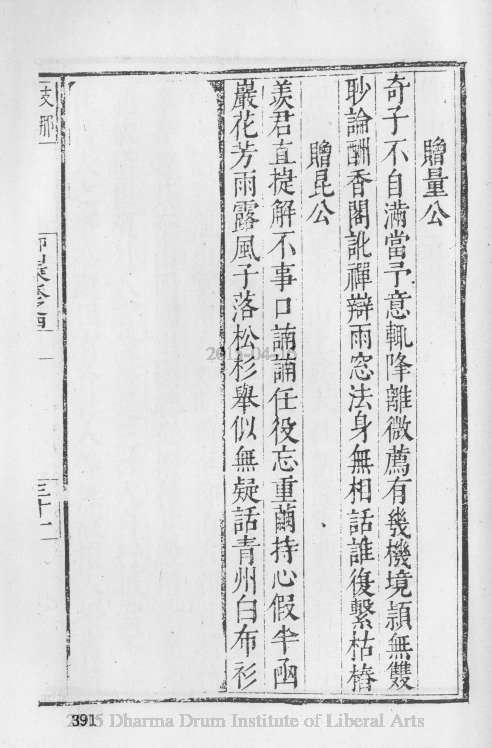 贈量公
奇子不自滿當予意輒降離微薦有幾機境穎無雙
眇論酬香閣訛禪辯雨窓法身無相話誰復繫枯樁
贈昆公
羨君直捷解不事口諵諵任役忘重繭持心假半函
巖花芳雨露風子落松杉舉似無疑話青州白布衫
支那
三十二
391
2015 Dharma Drum Institute of Liberal Arts